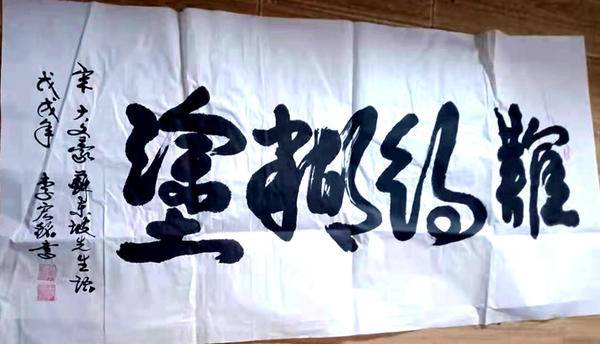 難得糊塗
宋大文豪蘇東坡先生語
戊戌年 李宏銘書